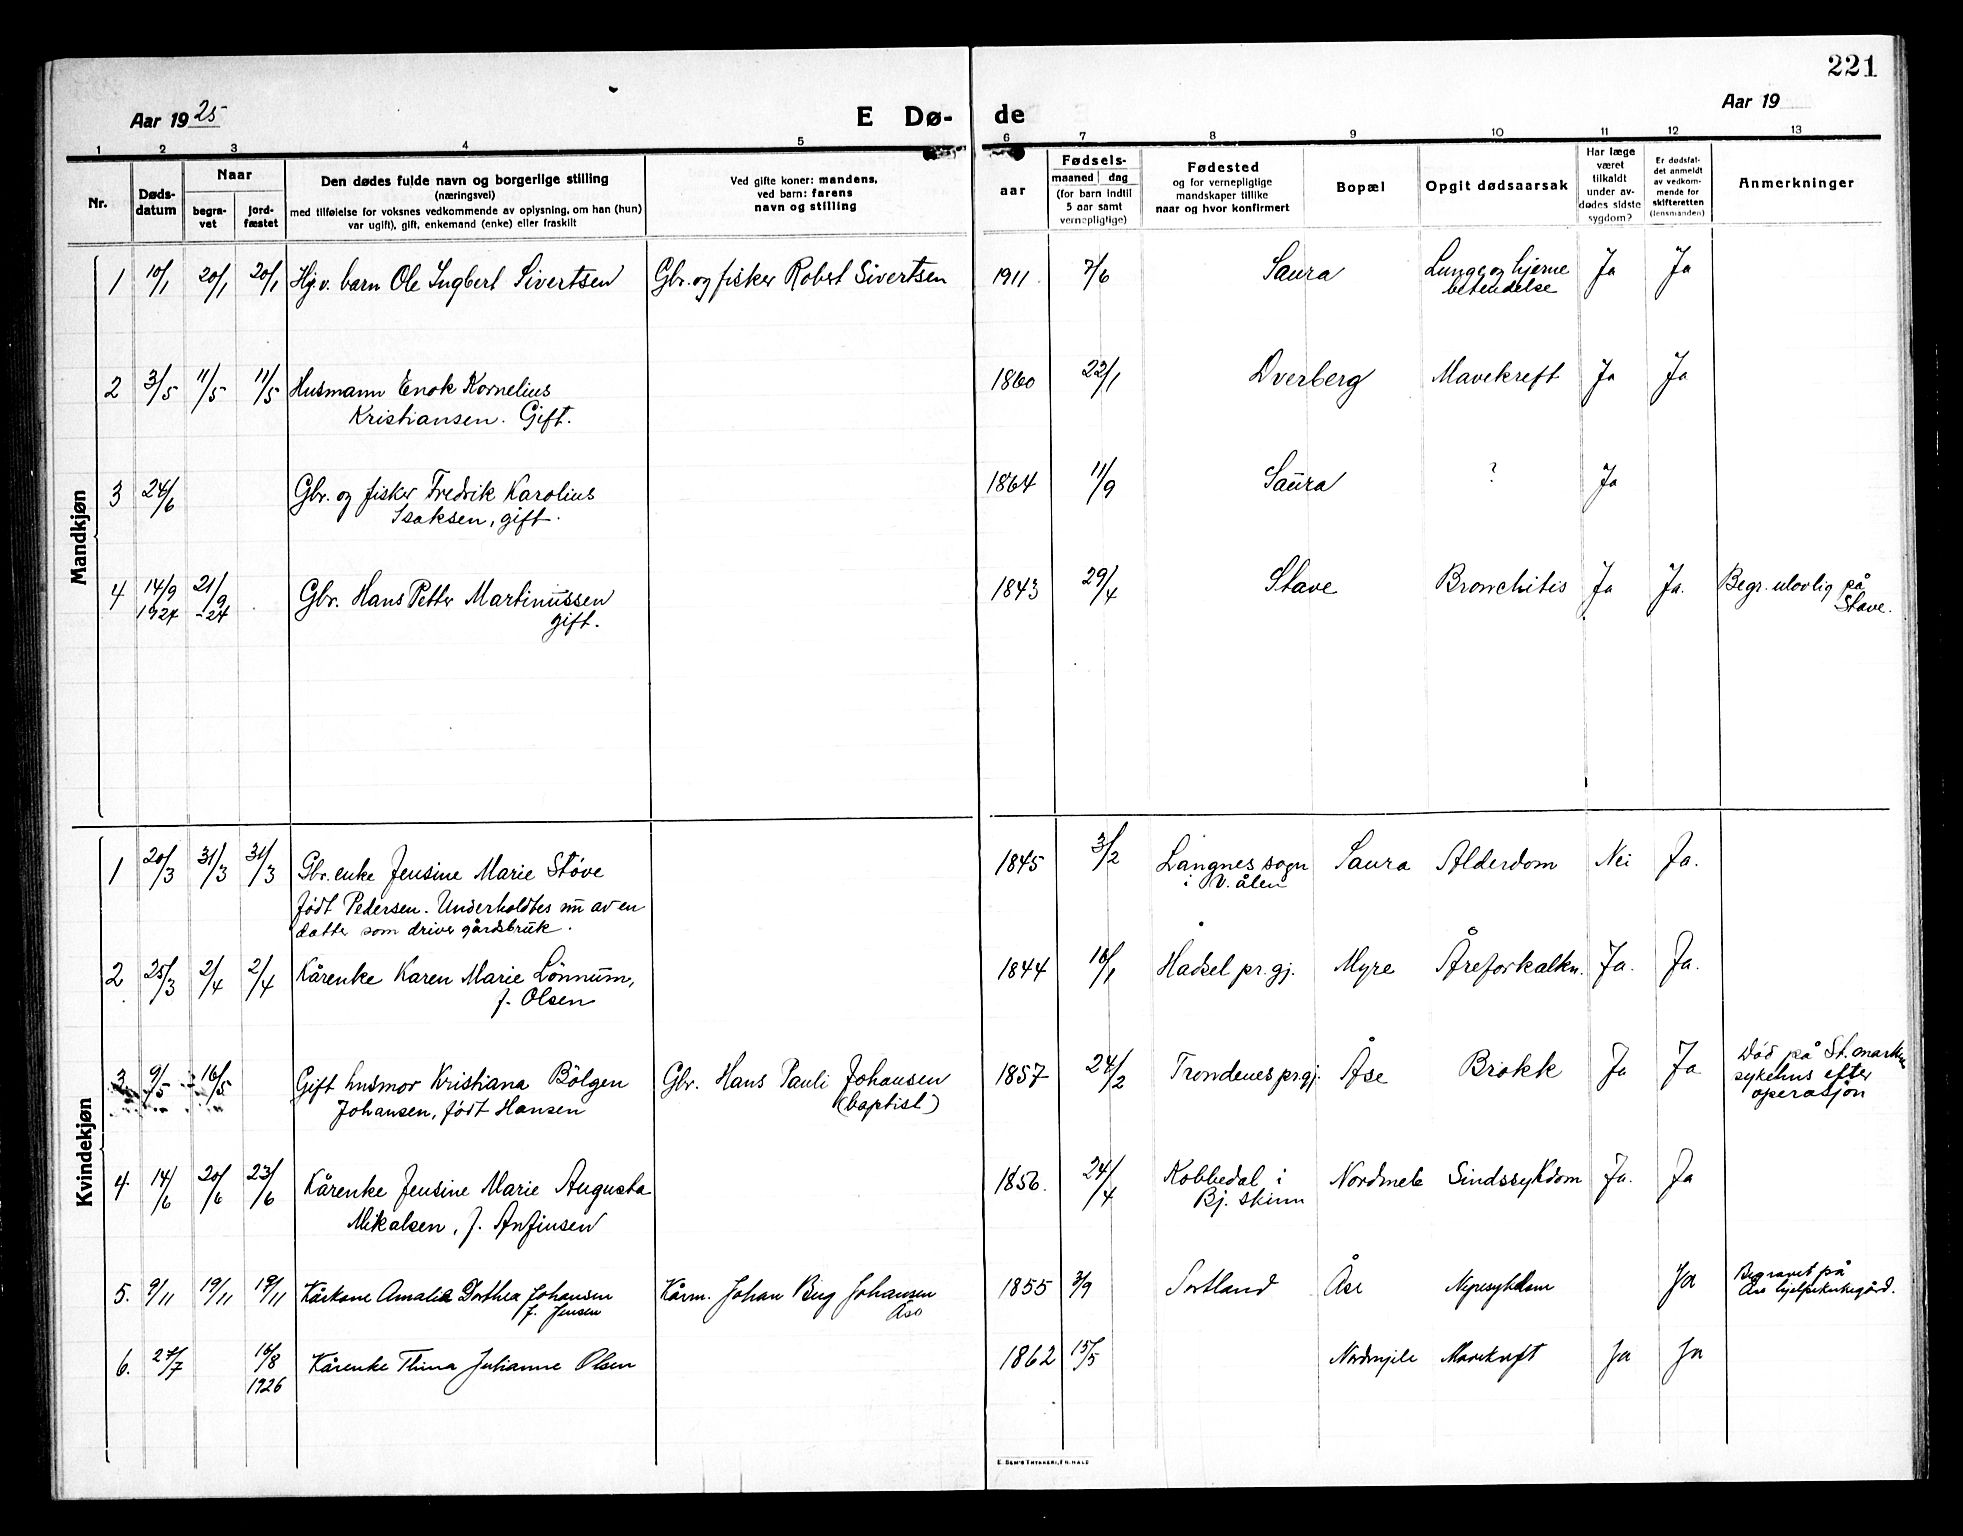 221
Aar 1925
E Dø-
de
Aar 19
1 2 3 4 5 6 7 8 9 10 11 12 13
Nr.
Døds-
datum
Naar
begra-
vet
jord-
fæstet
Den dødes fulde navn og borgerlige stilling
(næringsvei)
med tilføielse for voksnes vedkommende av oplysning, om han (hun)
var ugift), gift, enkemand (enke) eller fraskilt
Ved gifte koner: mandens,
ved barn: farens
navn og stilling
aar
Fødsels-
maaned dag
(for barn indtil
5 aar samt
vernepligtige)
Fødested
og for vernepligtige
mandskaper tillike
naar og hvor konfirmert
Bopæl
Opgit dødsaarsak
Har læge
været
tilkaldt
under av-
dødes sidste
sygdom?
Er dødsfal-
det anmeldt
av vedkom-
mende for
skifteretten
(lensmanden)
Anmerkninger
Mandkjøn
1 10/1 20/1 20/1 Hg.v. barn Ole Ingbert Sivertsen Gbr. og fisker Robert Sivertsen 1911. 7/6 Saura Lunge og hjerne Ja Ja
betendelse
2 3/5 11/5 11/5 Husmann Enok Kornelius 1860 22/1 Dverberg Mavekreft Ja Ja
Kristiansen. Gift.
3 24/6 Gbr. og fisker Fredrik Karolius 1864 11/9 Saura ? Ja
Isaksen, gift.
4 14/9 21/9 Gbr. Hans Petter Martinussen 1843 29/4 Stave Bronchitis Ja Ja. Begr. ulovlig på
1924 -24 gift. Stave.
Kvindekjøn
1 20/3 31/3 31/3 Gbr. enke Jensine Marie Støve 1845 3/2 Langnes sogn Saura Alderdom Nei Ja.
i V. ålen
født Pedersen. Underholdtes nu av en
datter som driver gårdsbruk.
2 25/3 2/4 2/4 Kårenke Karen Marie Lönnum, 1844 16/1 Hadsel pr.gj. Myre Åreforkalkn. Ja. Ja.
f. Olsen
3 9/5 16/5 Gift husmor Kristiana Bölgen Gbr. Hans Pauli Johansen 1857 24/2 Trondenes pr.gj. Åse Brokk Ja Ja Död på St.mark
Johansen, født Hansen (baptist) sykehus efter
operasjon
4 14/6 20/6 23/6 Kårenke Jensine Marie Augusta 1856. 24/4 Kobbedal i Nordmele Sindssykdom Ja. Ja
Mikalsen, f. Anfinsen Bj. skinn
5. 9/11 19/11 19/11 Kårkone Amalie Dorthea Johansen Kårm. Johan Big Johansen 1855 3/9 Sortland Åse Nyresykdom Ja Begravet på
f. Jensen Åse Åse hjelpekirkegård.
6. 27/7 16/8 Kårenke Thina Julianne Olsen 1862 15/5 Nordmjele Mavekreft Ja Ja
1926